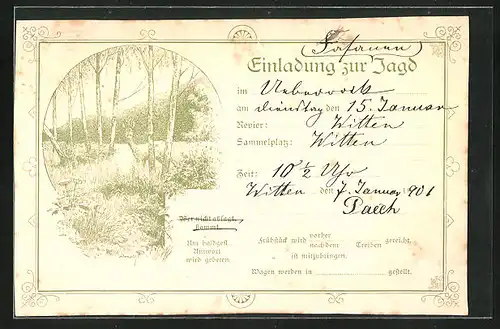 (Fasanen)
Einladung zur Jagd
im
am Dienstag den 15. Januar
Revier: Witten
Sammelplatz: Witten
Zeit: 10 ½ Uhr
Witten den 7. Januar 901
Paech
Wer nicht absagt,
kommt.
Um baldgefl.
Antwort
wird gebeten.
Frühstück wird vorher
nachdem Treiben gereicht,
ist mitzubringen.
Wagen werden in gestellt.